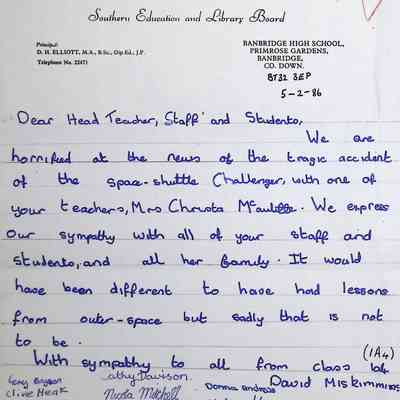 Southern Education and Library Board
Principal:
D. H. ELLIOTT, M.A., B.Sc., Dip.Ed., J.P.
Telephone No. 22471
BANBRIDGE HIGH SCHOOL,
PRIMROSE GARDENS,
BANBRIDGE,
CO. DOWN.
BT32 3EP
5-2-86
Dear Head Teacher, Staff and Students,
We are
horrified at the news of the tragic accident
of the space-shuttle Challenger, with one of
your teachers, Mrs Christa McAuliffe. We express
our sympathy with all of your staff and
students, and all her family. It would
have been different to have had lessons
from outer-space but sadly that is not
to be.
(1A4)
With sympathy to all from class
David Miskimmins
athy Davison.
Clive Heak
Nicola Mitchell
Donna Andrews